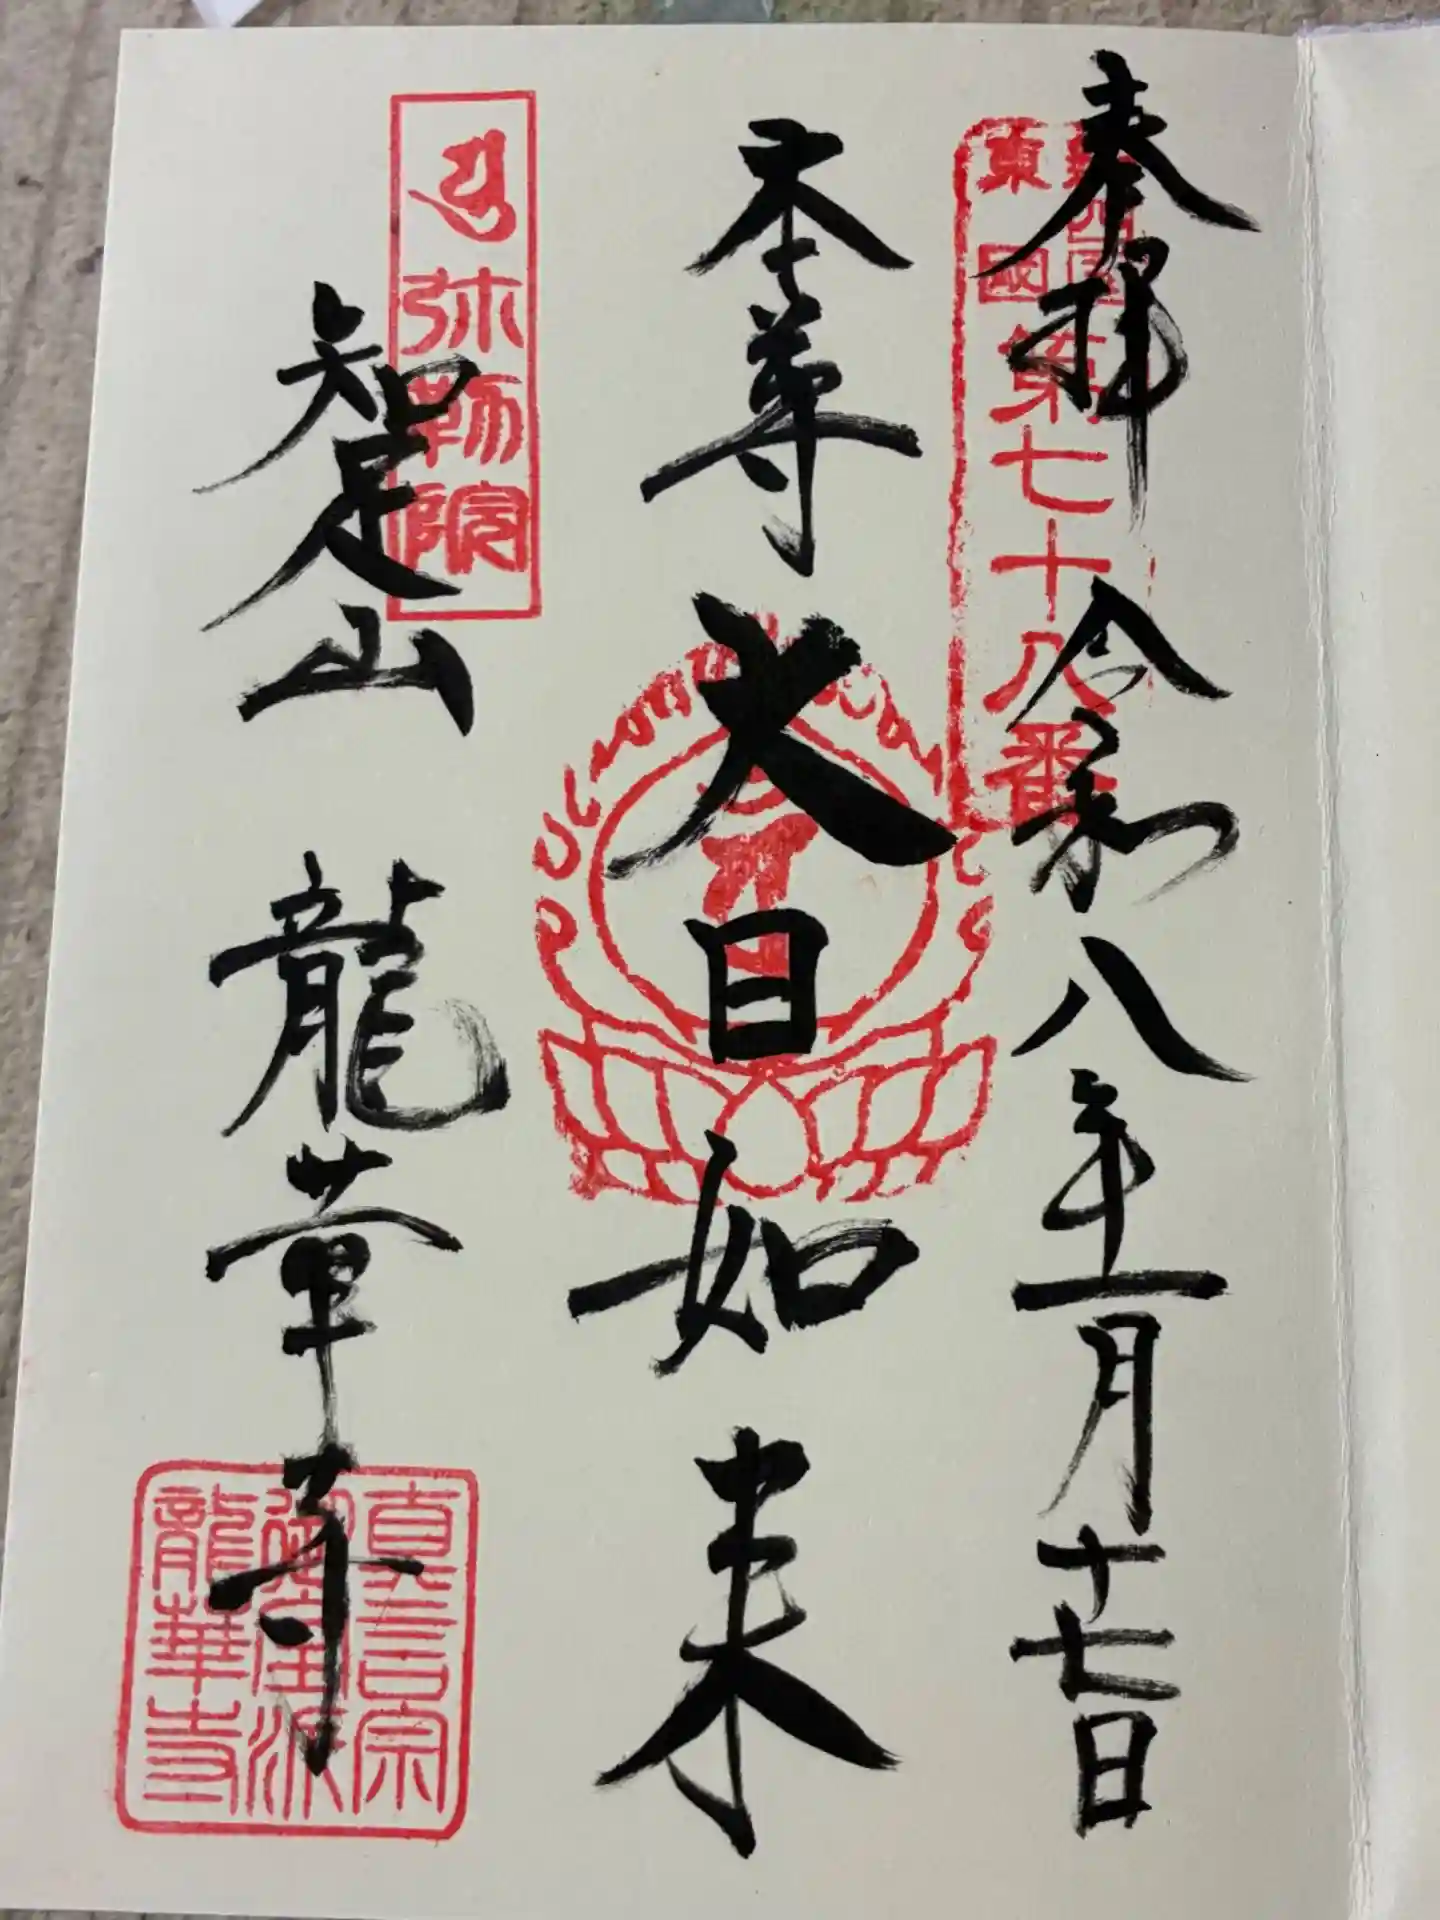 奉拝 令和八年一月十七日
新四國
東國
第七十八番
本尊 大日如来
弥勒院
知足山 龍華寺
真言宗
御室派
龍華寺